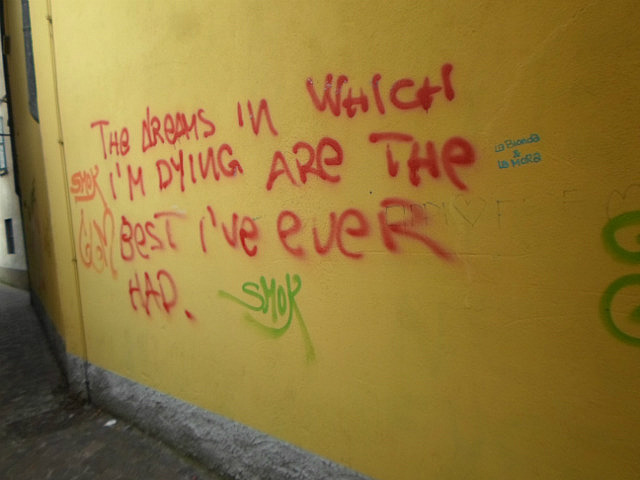 THE DREAMS IN WHICH
I'M DYING ARE THE
BEST I'VE EVER
HAD.
SMOK
SMOK
La Bionda
&
La MORA